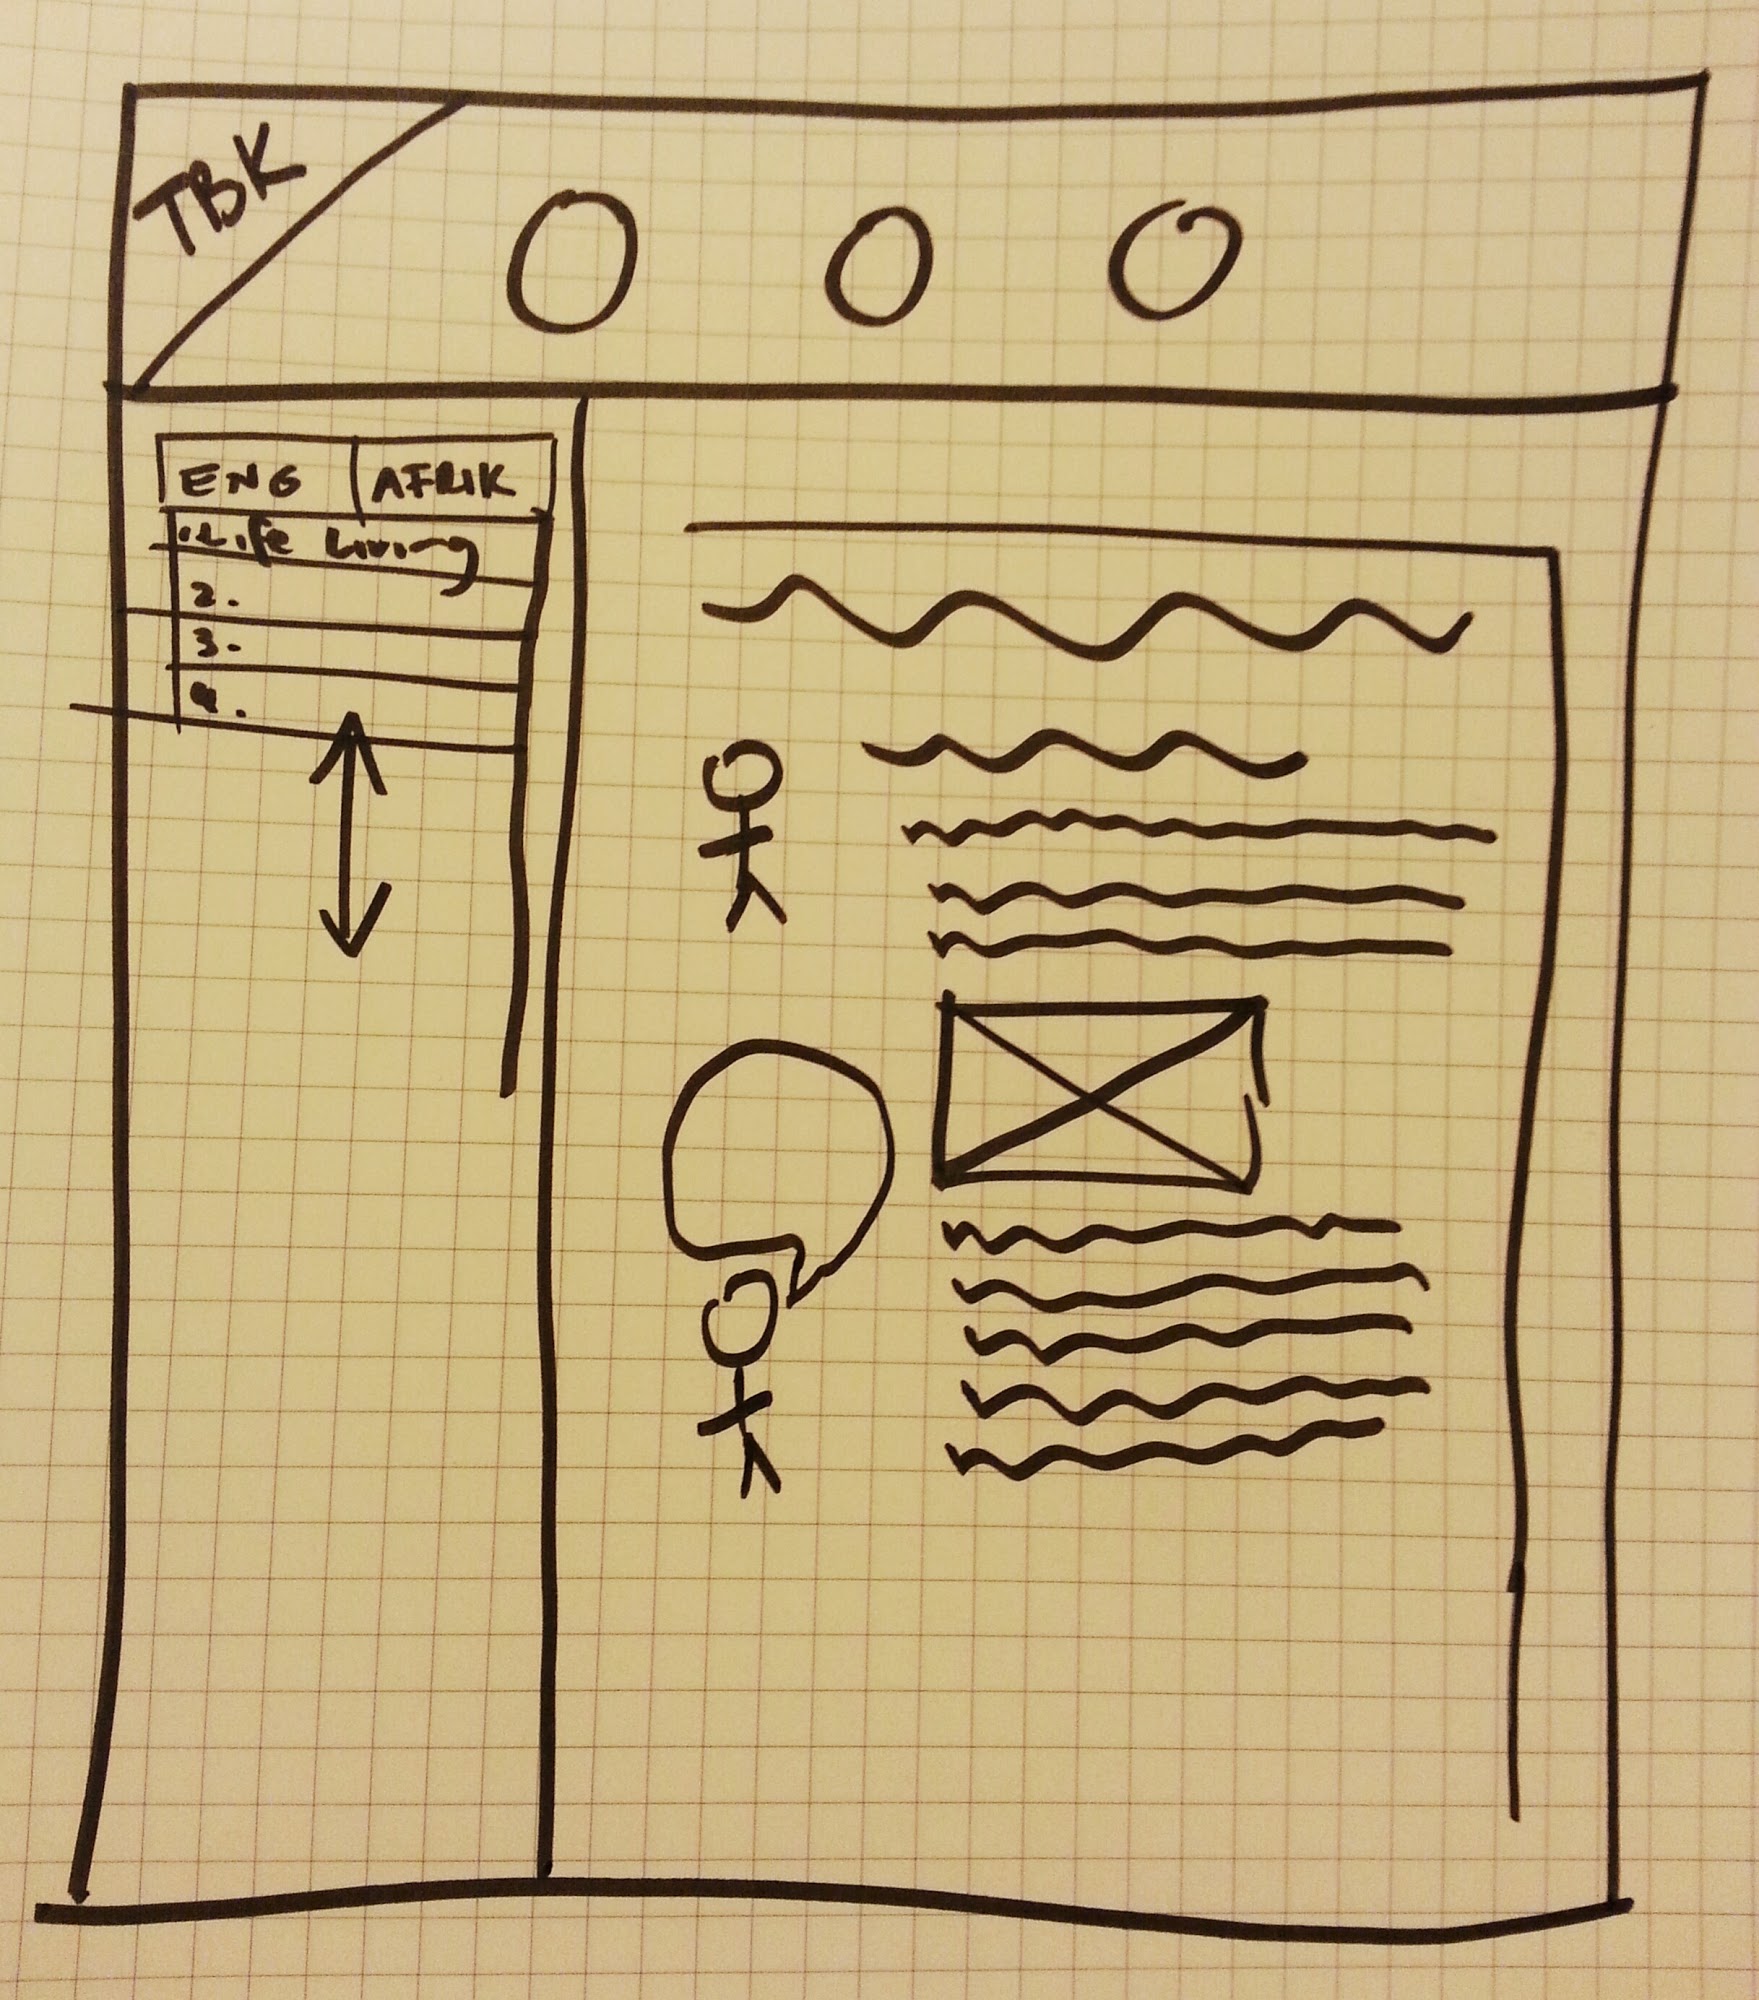 TBK
ENG AFRIK
1. Life Living
2.
3.
4.